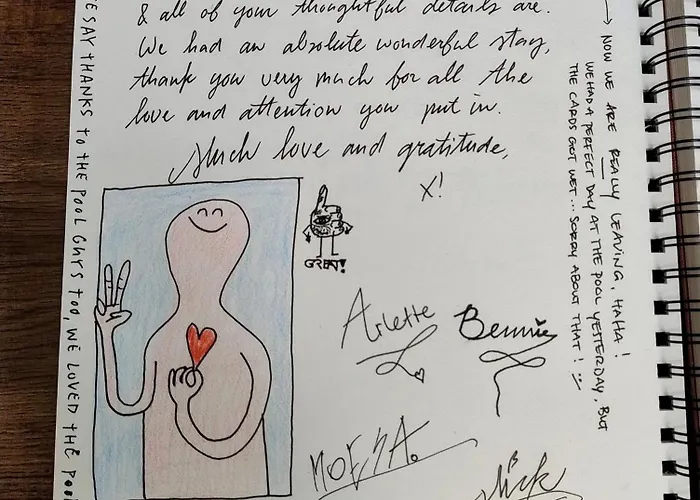 & all of your thoughtful details are.
We had an absolute wonderful stay,
thank you very much for all the
love and attention you put in.
Much love and gratitude,
X!
GREAT!
Arlette
Bennie
MOEHA.
Mick
E SAY THANKS to THE POOL GUYS TOO, WE LOVED THE POO
→ NOW WE ARE REALLY LEAVING, HAHA!
WE HAD A PERFECT DAY AT THE POOL YESTERDAY, BUT
THE CARDS GOT WET... SORRY ABOUT THAT! :)